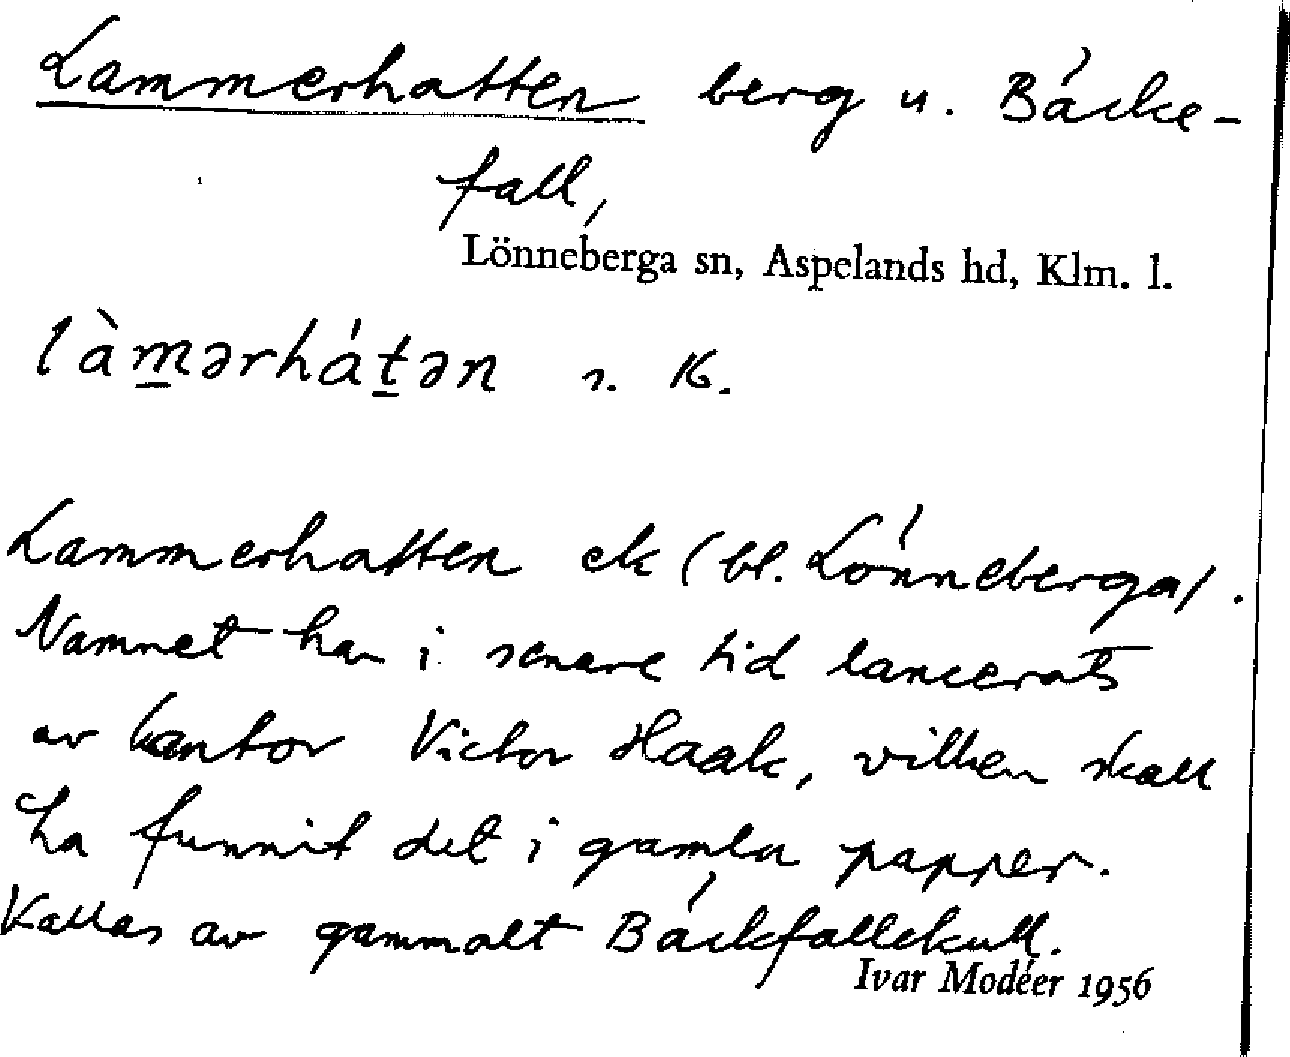 Lammerhatten berg u. Bäcke-
fall,
Lönneberga sn, Aspelands hd, Klm. l.
làm̲ərhát̲ən s. 16.
Lammerhatten ek (bl. Lönneberga).
Namnet har i senare tid lancerats
av kantor Victor Haak, vilken skall
ha funnit det i gamla papper.
Kallas av gammalt Bäckfallekull.
Ivar Modéer 1956